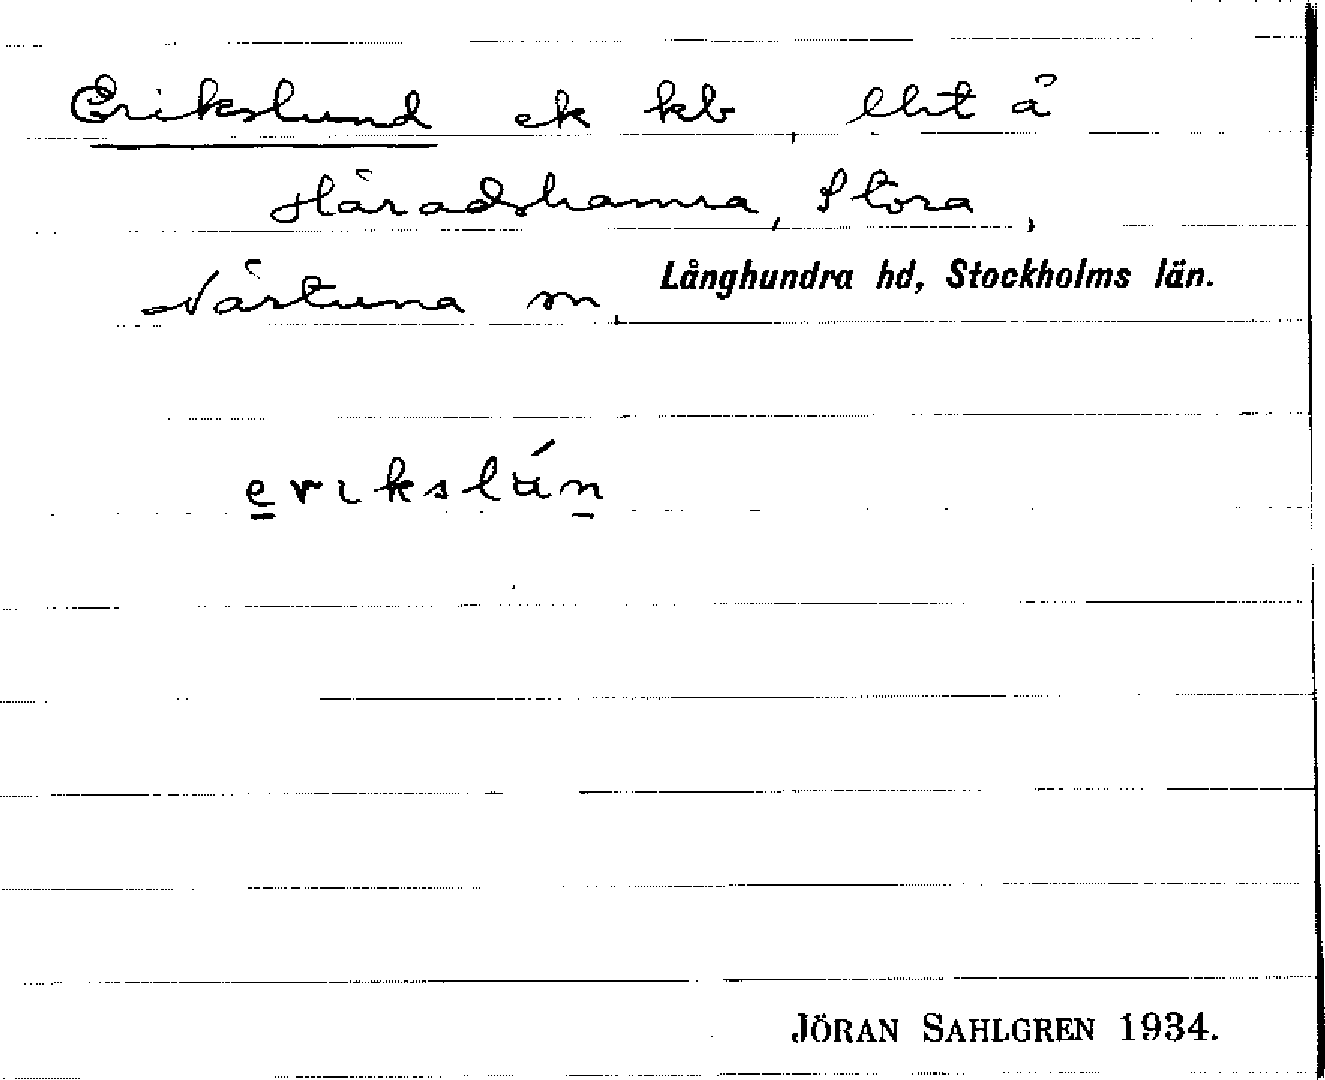 Erikslund ek kb, lht å
Häradshamra, Stora,
Närtuna sn, Långhundra hd, Stockholms län.
erikslún
JÖRAN SAHLGREN 1934.